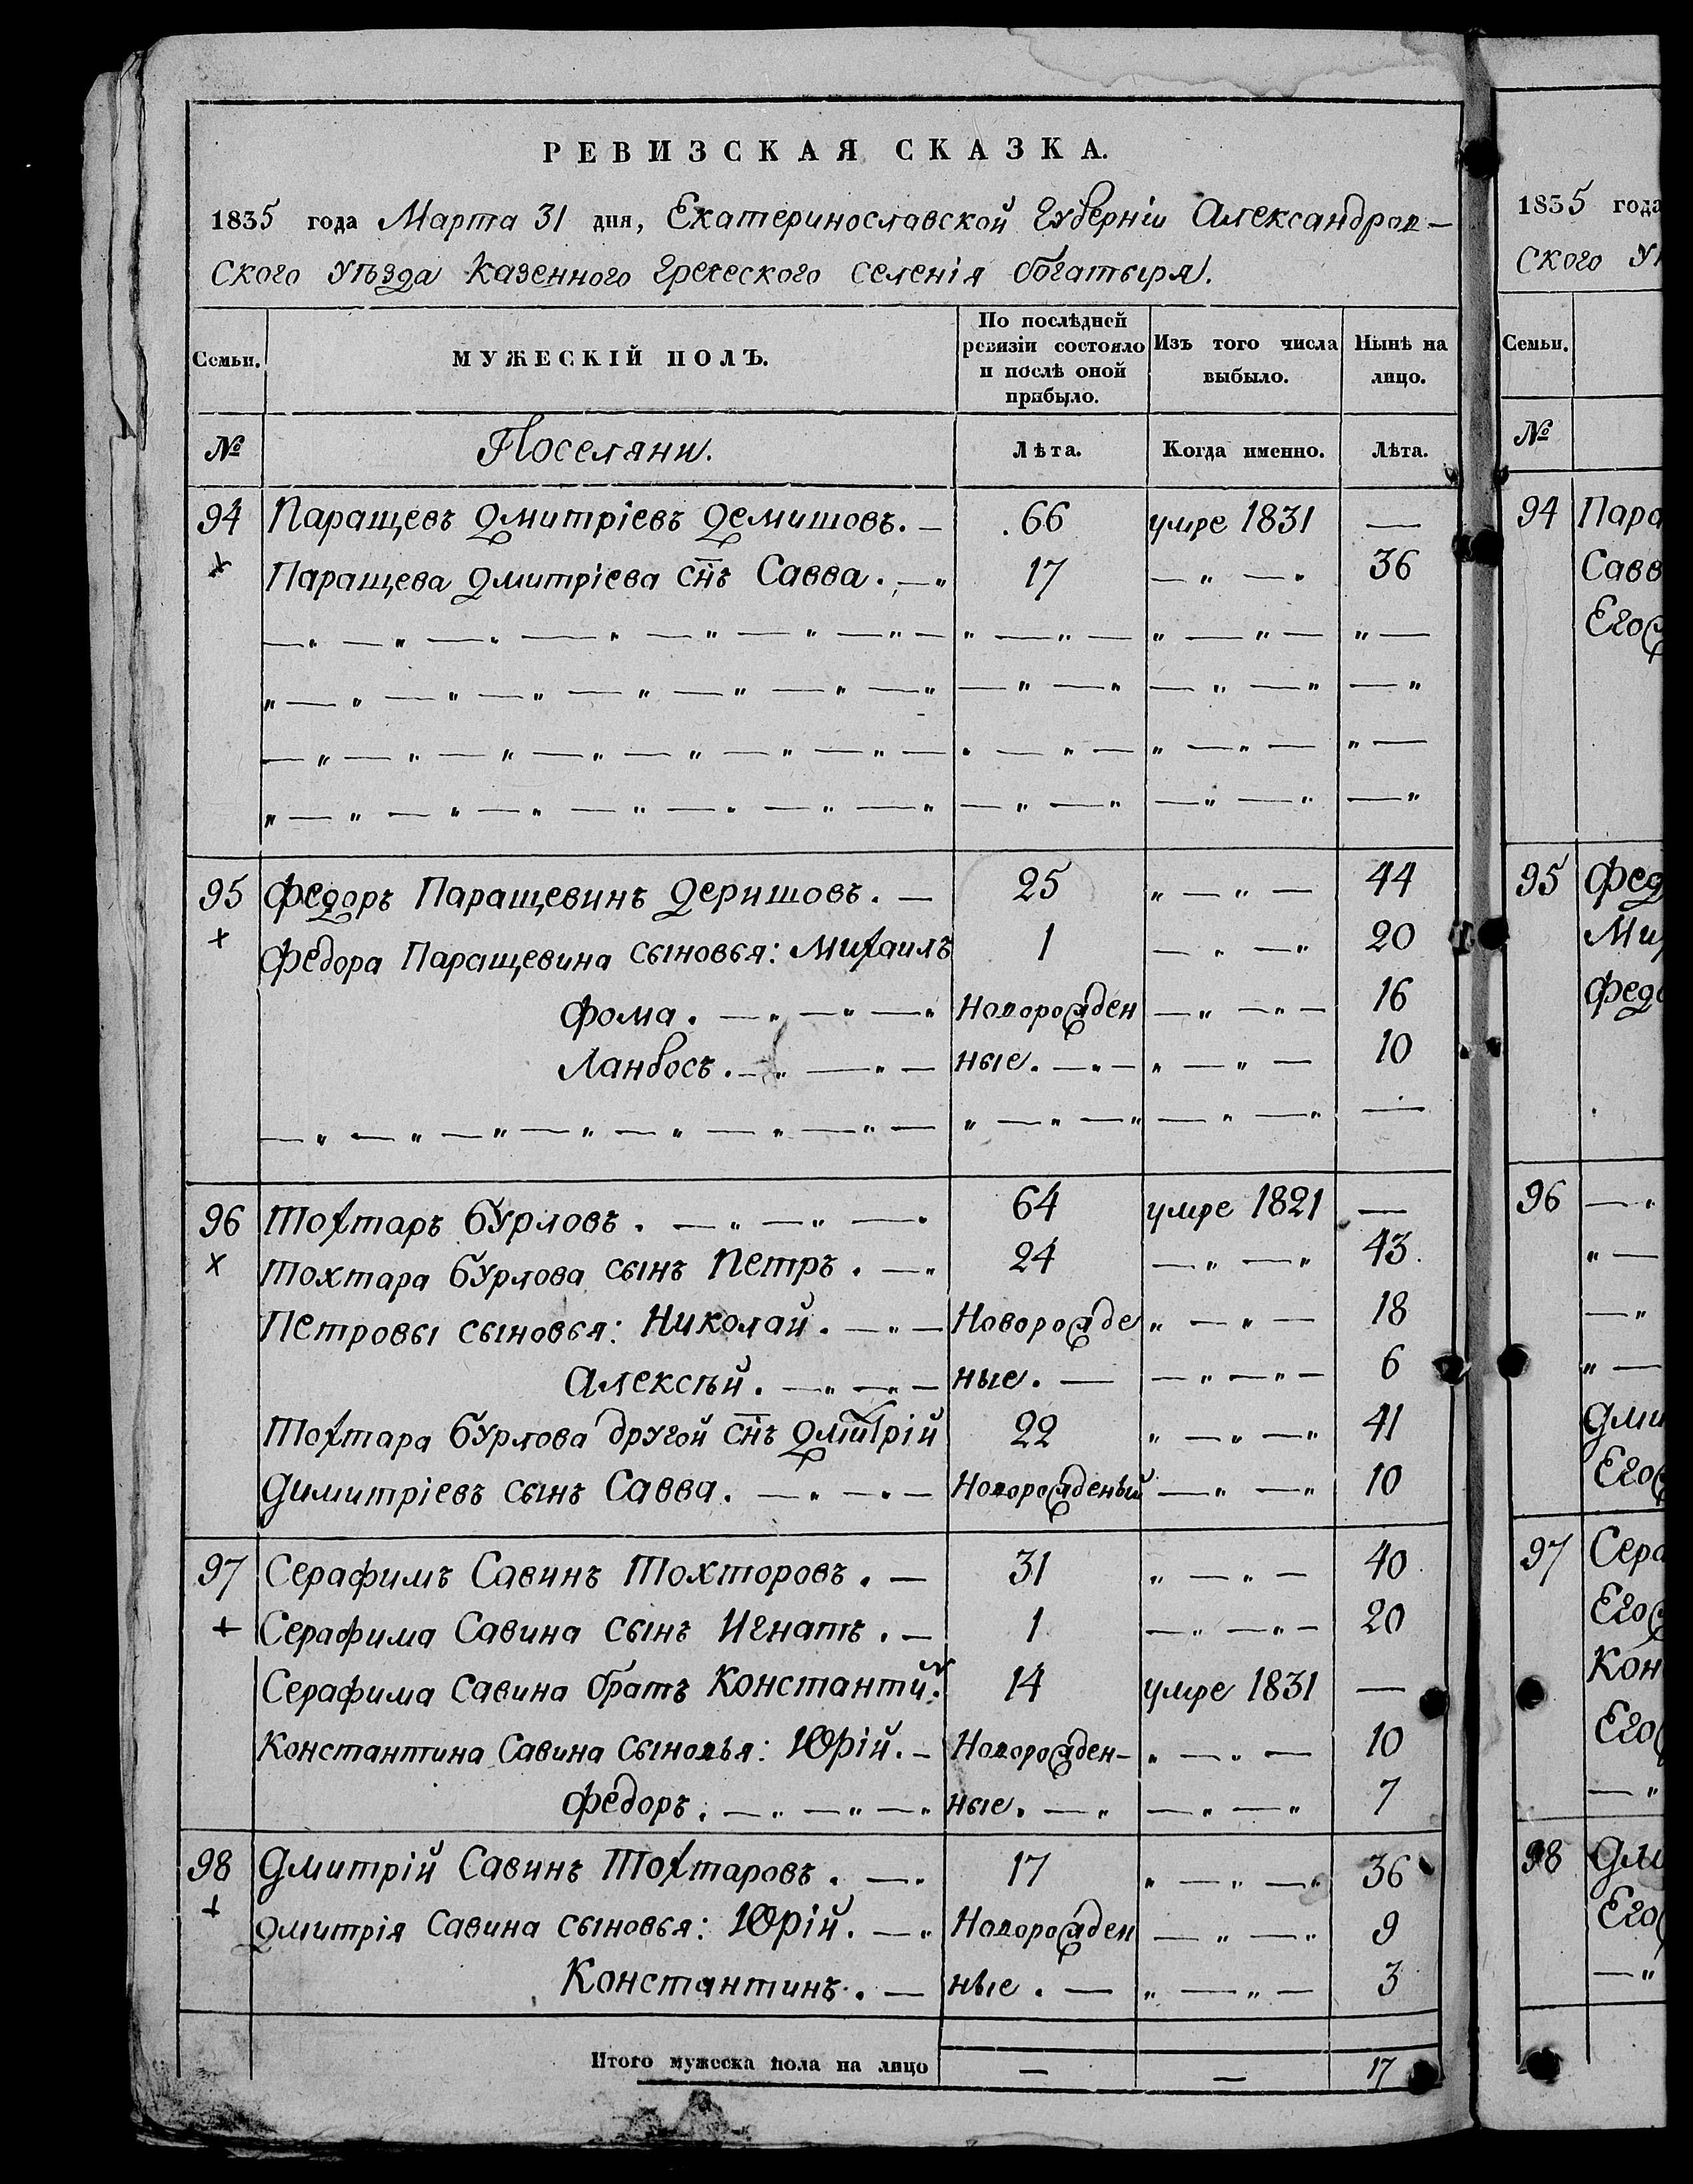 РЕВИЗСКАЯ СКАЗКА.
1835 года Марта 31 дня, Екатеринославской Губерніи Александров-
ского уѣзда казенного греческого селенія Богатыря.
Семьи. МУЖЕСКІЙ ПОЛЪ. По послѣдней ревизіи состояло и послѣ оной прибыло. Изъ того числа выбыло. Нынѣ на лицо.
№ Поселяни. Лѣта. Когда именно. Лѣта.
94 Паращевъ Дмитріевъ Демишовъ. — 66 умре 1831 —
Паращева Дмитріева снъ Савва. 17 — „ — „ 36
95 Федоръ Паращевинъ Деришовъ. — 25 „ — „ — 44
Федора Паращевина сыновья: Михаилъ 1 — „ — „ 20
Фома. — „ — „ — „ Новорожден — „ — „ — 16
Ланбосъ. — „ — „ — ные. — „ — „ — „ — 10
96 Тохтаръ Бурловъ. — „ — „ — „ 64 умре 1821 —
Тохтара Бурлова сынъ Петръ. — „ 24 — „ — „ 43.
Петровы сыновья: Николай. — „ — Новорожде „ — „ — 18
Алексѣй. — „ — „ — ные. — — „ — „ — 6
Тохтара Бурлова другой снъ Дмитрій 22 „ — „ — „ 41
Димитріевъ сынъ Савва. — „ — „ — Новорожденый — „ — „ 10
97 Серафимъ Савинъ Тохторовъ. — 31 „ — „ — 40
Серафима Савина сынъ Игнатъ. — 1 — „ — „ — 20
Серафима Савина братъ Константи. 14 умре 1831 —
Константина Савина сыновья: Юрій. — Новорожден- „ — „ — 10
Федоръ. — „ — „ — „ ные. — „ — „ — „ 7
98 Дмитрій Савинъ Тохтаровъ. — „ 17 „ — „ — „ 36
Дмитрія Савина сыновья: Юрій. — „ Новорожден — „ — „ 9
Константинъ. — ные. — „ — „ — 3
Итого мужеска пола на лицо — — 17
1835 года
ского
Семьи.
№
94 Пара
Савв
Его
95 Фед
Мих
Федо
96
Дми
Его
97 Сера
Его
Кон
Его
98 Дми
Его